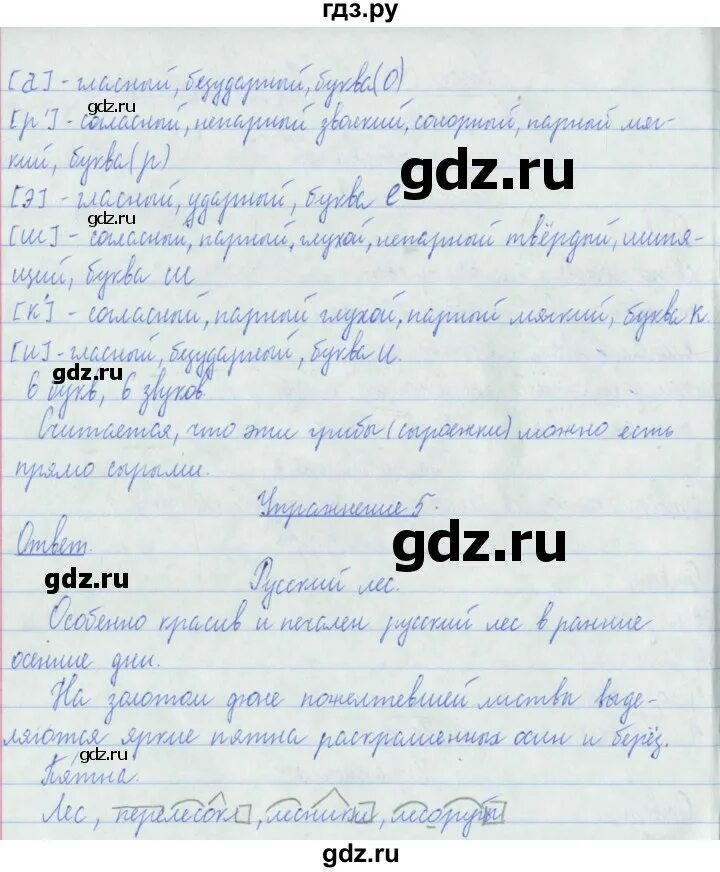 гдз.ру
[а] - гласный, безударный, буква (о)
gdz.ru
[р'] - согласный, непарный звонкий, сонорный, парный мяг-
кий, буква (р)
gdz.ru
[э] - гласный, ударный, буква е
gdz.ru
[ш] - согласный, парный, глухой, непарный твёрдый, шипя-
щий, буква ш
[к'] - согласный, парный глухой, парный мягкий, буква к.
[и] - гласный, безударный, буква и.
gdz.ru
6 букв, 6 звуков.
Считается, что эти грибы (сыроежки) можно есть
прямо сырыми.
Упражнение 5.
Ответ.
gdz.ru
gdz.ru
Русский лес.
Особенно красив и печален русский лес в ранние
осенние дни.
На золотом фоне пожелтевшей листвы выде-
ляются яркие пятна раскрашенных осин и берёз.
gdz.ru
Пятна.
Лес, перелесок, лесники, лесорубы
gdz.ru